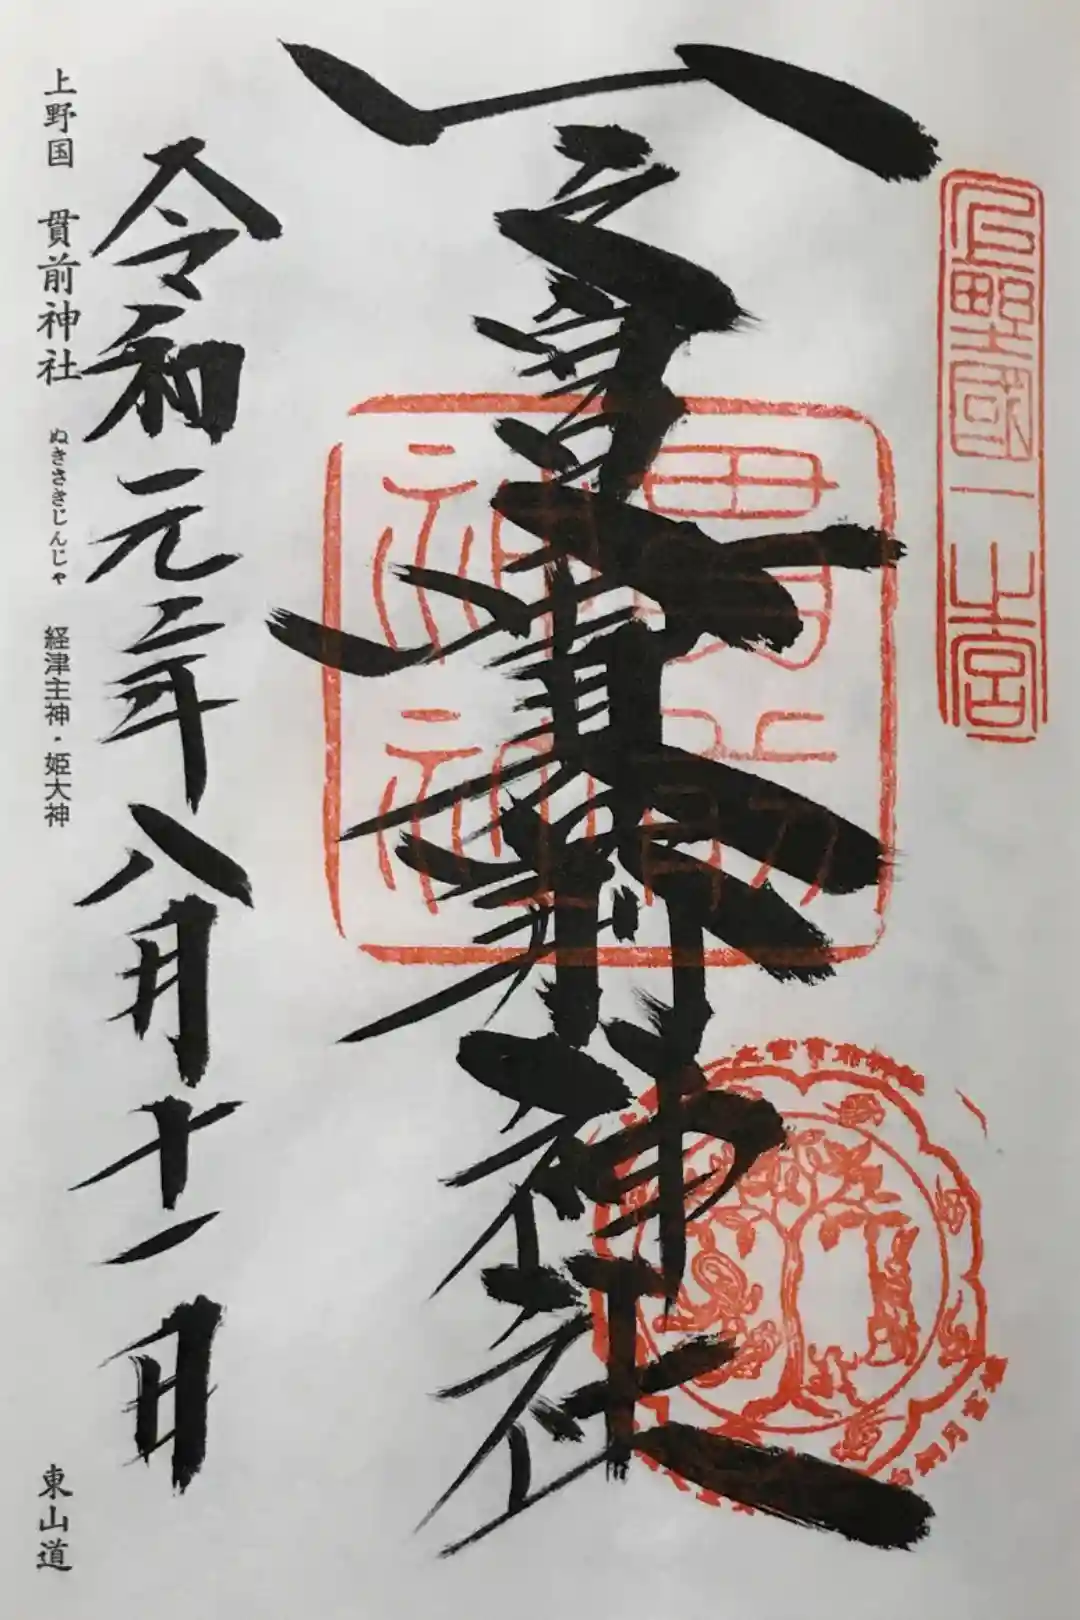 上野國一之宮
一之宮貫前神社
令和元年八月十一日
上野国 貫前神社 ぬきさきじんじゃ 経津主神・姫大神 東山道